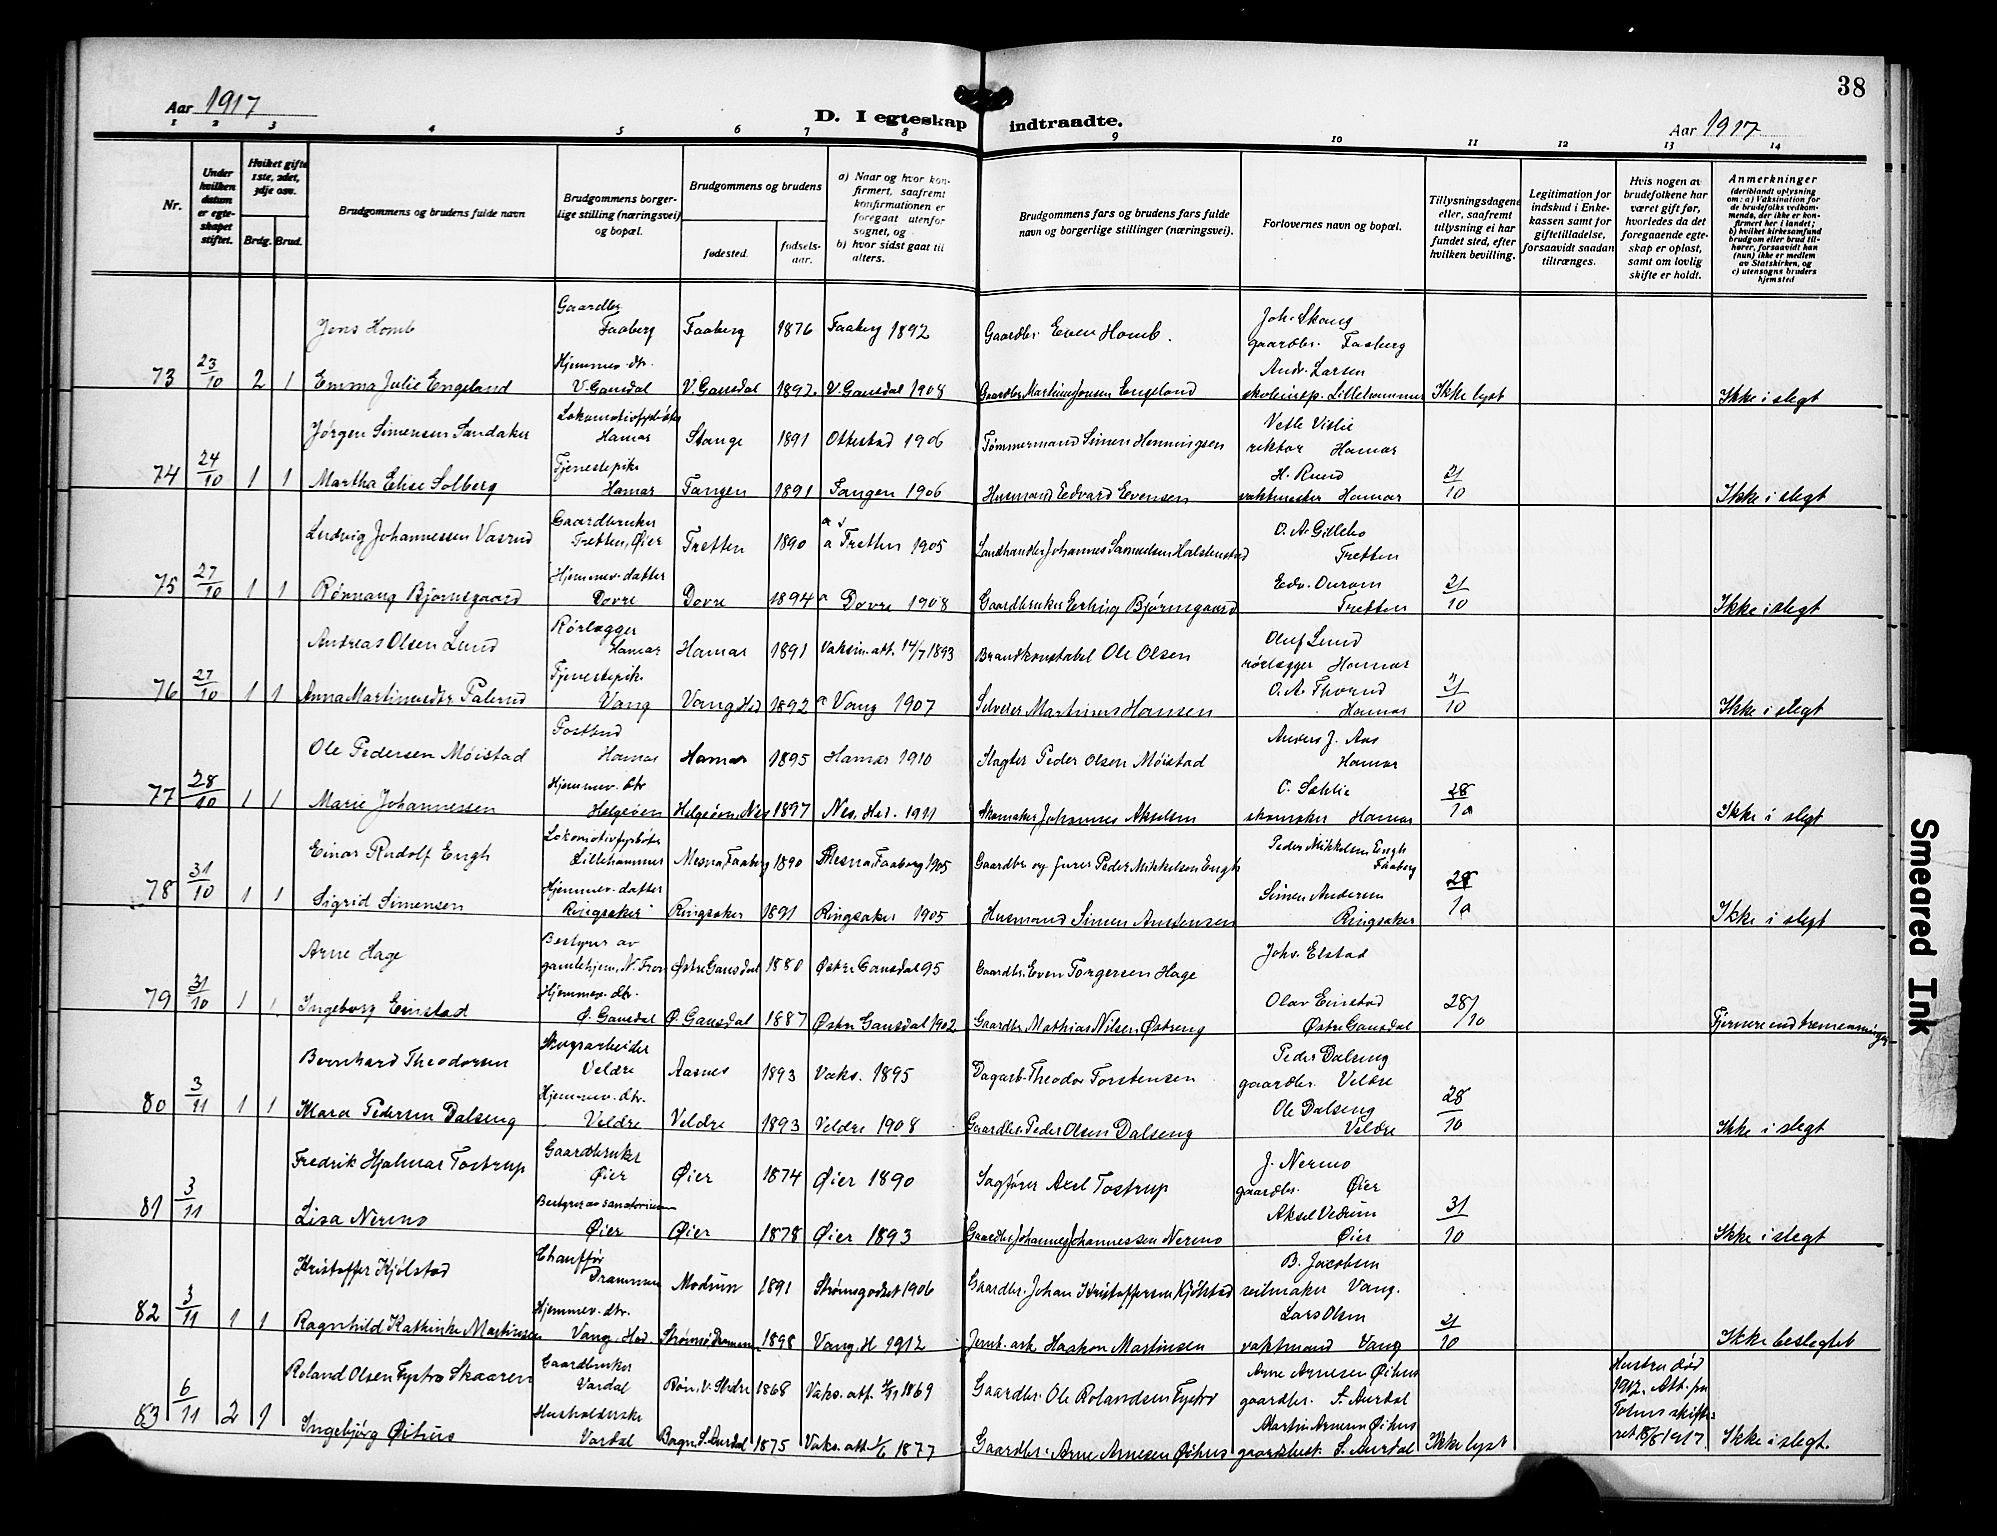 38
Aar 1917
D. I egteskap indtraadte.
Aar 1917
1 2 3 4 5 6 7 8 9 10 11 12 13 14
Nr.
Under hvilken datum er egteskapet stiftet.
Hvilket gifte 1ste, 2det, 3dje osv.
Brdg. Brud.
Brudgommens og brudens fulde navn
Brudgommens borgerlige stilling (næringsvei) og bopæl.
Brudgommens og brudens
fødested.
fødselsaar.
a) Naar og hvor konfirmert, saafremt konfirmationen er foregaat utenfor sognet, og
b) hvor sidst gaat til alters.
Brudgommens fars og brudens fars fulde navn og borgerlige stillinger (næringsvei).
Forlovernes navn og bopæl.
Tillysningsdagene eller, saafremt tillysning ei har fundet sted, efter hvilken bevilling.
Legitimation for indskud i Enkekassen samt for giftetilladelse, forsaavidt saadan tiltrænges.
Hvis nogen av brudefolkene har været gift før, hvorledes da det foregaaende egteskap er opløst, samt om lovlig skifte er holdt.
Anmerkninger
(deriblandt oplysning om: a) Vaksination for de brudefolks vedkommende, der ikke er konfirmert her i landet; b) hvilket kirkesamfund brudgom eller brud tilhører, forsaavidt han (hun) ikke er medlem av Statskirken, og c) utensogns bruders hjemsted
Jens Homb Gaardbr. Faaberg Faaberg 1876 Faaberg 1892 Gaardbr. Even Homb. Joh. Skaug gaardbr. Faaberg
73 23/10 2 1 Emma Julie Engeland Hjemmev. dtr. V. Gausdal V. Gausdal 1892. V. Gausdal 1908 Gaardbr. Martinus Jonsen Engeland Andr. Larsen skoleinsp. Lillehammer Ikke lyst Ikke i slegt
Jørgen Simensen Sandaker Lokomotivfyrbøter Hamar Stange 1891 Ottestad 1906 Tømmermand Simen Henningsen Vetle Vislie rektor Hamar
74 24/10 1 1 Martha Elise Solberg Tjenestepike Hamar Tangen 1891 Tangen 1906 Husmand Edvard Evensen H. Ruud vaktmester Hamar 21/10 Ikke i slegt
Ludvig Johannessen Vasrud Gaardbruker Tretten, Øier Tretten 1890 a Tretten 1905 Landhandler Johannes Samuelsen Halstenstad O. A. Gillebo Tretten
75 27/10 1 1 Rønnaug Bjørnsgaard Hjemmev. datter Dovre Dovre 1894 a Dovre 1908 Gaardbruker Erling Bjørnsgaard Edv. Onrom Tretten 21/10 Ikke i slegt
Andreas Olsen Lund Rørlægger Hamar Hamar 1891 Vaksin. att. 14/7 1893 Brandkonstabel Ole Olsen Oluf Lund rørlægger Hamar
76 27/10 1 1 Anna Martinusdtr Palerud Tjenestepike Vang Vang Hed 1892 a Vang 1907 Selveier Martinus Hansen O. A. Thorud Hamar 21/10 Ikke i slegt
Ole Pedersen Møistad Postbud Hamar Hamar 1895 Hamar 1910 Slagter Peder Olsen Møistad Anders J. Aas Hamar
77 28/10 1 1 Marie Johannessen Hjemmev. dtr Helgøen Helgøen, Nes 1897 Nes, Hed. 1911 Skomaker Johannes Akselsen C. Sæhlie skomaker Hamar 28/10 Ikke i slegt
Einar Rudolf Engh Lokomotivfyrbøter Lillehammer Mesna, Faaberg 1890 Mesna, Faaberg 1905 Gaardbr og furer Peder Mikkelsen Engh Peder Mikkelsen Engh Faaberg
78 31/10 1 1 Sigrid Simensen Hjemmev. datter Ringsaker Ringsaker 1891 Ringsaker 1905 Husmand Simen Amstensen Simen Andersen Ringsaker 28/10 Ikke i slegt
Arne Hage Bestyrer av gamlehjem, N. Fron Østre Gausdal 1880 Østre Gausdal 95 Gaardbr. Even Torgersen Hage Johs. Elstad
79 31/10 1 1 Ingeborg Einstad Hjemmev. dtr. Ø. Gausdal Ø. Gausdal 1887 Østre Gausdal 1902 Gaardbr. Mathias Nilsen Østreng Olav Einstad Østre Gausdal 28/10 Fjernere end tremenninger
Bernhard Theodorsen Skogsarbeider Veldre Aasnes 1893 Vaks. 1895 Dagarb. Theodor Torstensen Peder Dalseng gaardbr. Veldre
80 3/11 1 1 Mara Pedersen Dalseng Hjemmev. dtr. Veldre Veldre 1893 Veldre 1908 Gaardbr. Peder Olsen Dalseng Ole Dalseng Veldre 28/10 Ikke i slegt
Fredrik Hjalmar Tostrup Gaardbruker Øier Øier 1874 Øier 1890 Sagfører Axel Tostrup J. Nermo gaardbr. Øier
81 3/11 Lisa Nermo Bestyrer av sanatorium Øier Øier 1878 Øier 1893 Gaardbr. Johannes Johannessen Nermo Aksel Vedum Øier 31/10 Ikke i slegt
Kristoffer Kjølstad Chauffør Drammen Modum 1891 Strømsgodset 1906 Gaardbr. Johan Kristoffersen Kjølstad B. Jacobsen seilmaker Vang.
82 3/11 1 1 Ragnhild Kathinka Martinsen Hjemmev. dtr. Vang, Hed Strømsø Drammen 1898 Vang, H 1912 Jernb. arb. Haakon Martinsen Lars Olsen vaktmand Vang 21/10 Ikke beslegtet
Roland Olsen Fystro Skaaren Gaardbruker Vardal Røn, V. Slidre 1868 Vaks. att. 1869 Gaardbr. Ole Rolandsen Fystro Arne Arnesen Øihus gaardbr. S. Aurdal Hustru død 1912. Att. fra Totens skifteret 18/8 1917
83 6/11 2 1 Ingebjørg Øihus Husholderske Vardal Bagn, S. Aurdal 1875 Vaks. att. 1/6 1877 Gaardbr. Arne Arnesen Øihus Martin Arnesen Øihus gaardbest. S. Aurdal Ikke lyst Ikke i slegt.
Smeared Ink